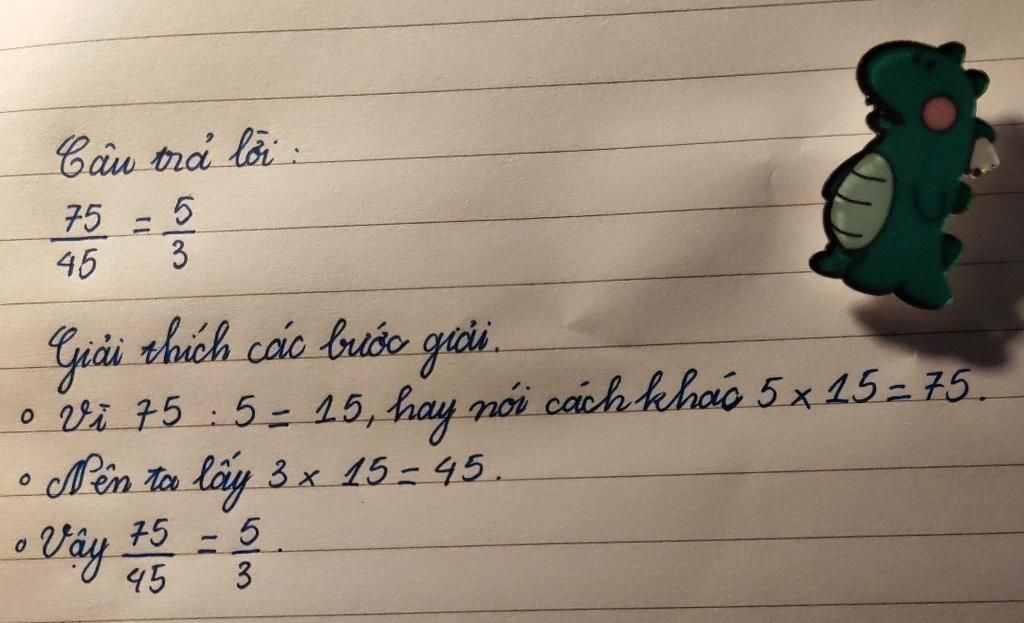 Câu trả lời:
75/45 = 5/3
Giải thích các bước giải.
• Vì 75 : 5 = 15, hay nói cách khác 5 x 15 = 75.
• Nên ta lấy 3 x 15 = 45.
• Vậy 75/45 = 5/3.